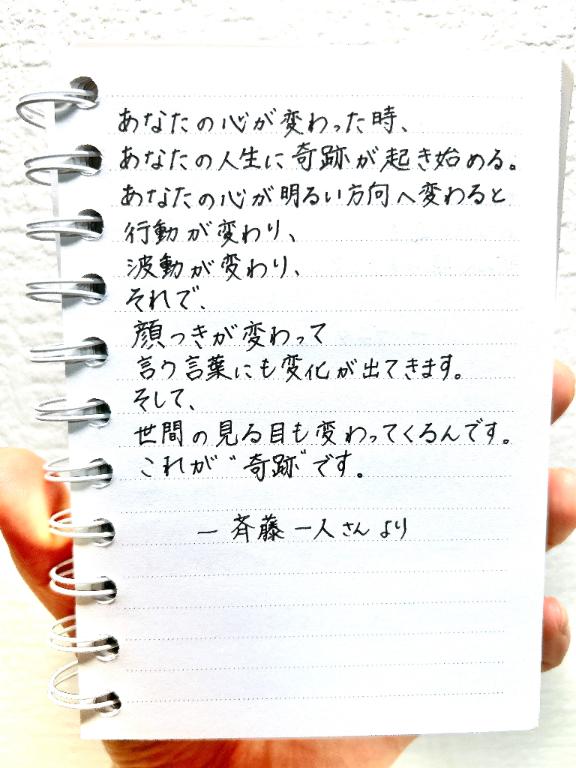 あなたの心が変わった時、
あなたの人生に奇跡が起き始める。
あなたの心が明るい方向へ変わると
行動が変わり、
波動が変わり、
それで、
顔つきが変わって
言う言葉にも変化が出てきます。
そして、
世間の見る目も変わってくるんです。
これが"奇跡"です。
― 斉藤一人さんより